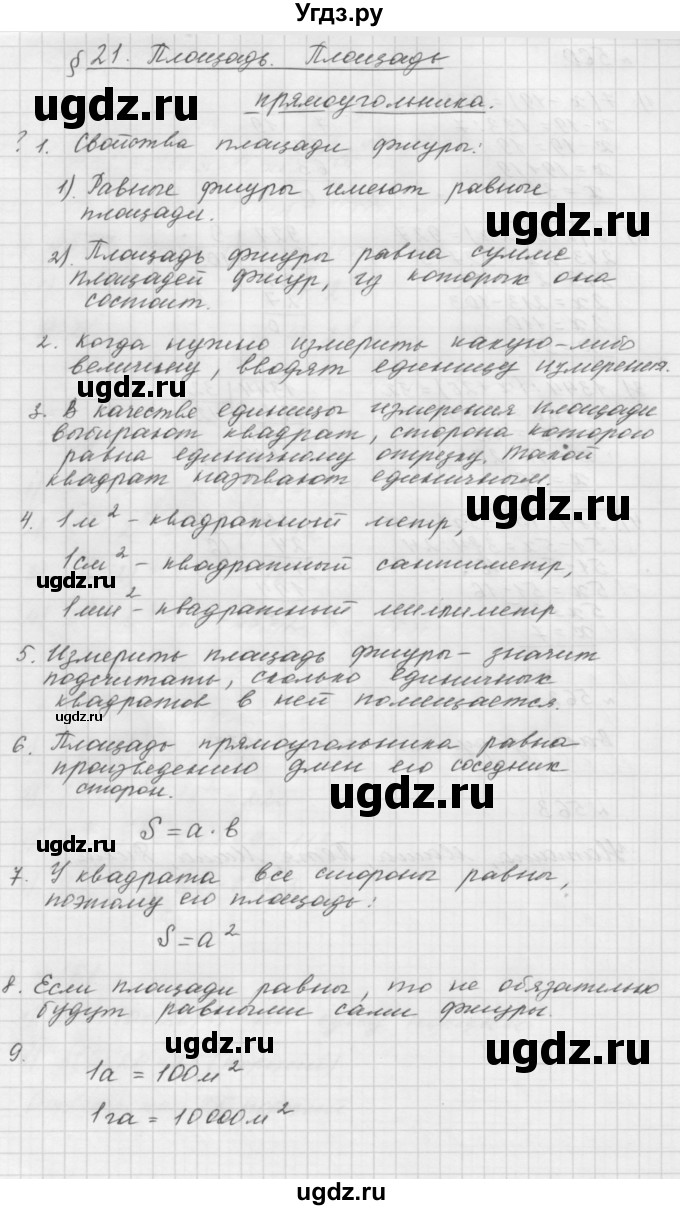 Угдз.ру
§ 21. Площадь. Площадь
ugdz.ru
прямоугольника.
? 1. Свойства площади фигуры:
ugdz.ru
1). Равные фигуры имеют равные
площади.
ugdz.ru
2). Площадь фигуры равна сумме
площадей фигур, из которых она
состоит.
2. Когда нужно измерить какую-либо
величину, вводят единицу измерения.
ugdz.ru
3. В качестве единицы измерения площади
выбирают квадрат, сторона которого
равна единичному отрезку. Такой
квадрат называют единичным.
4. 1м² - квадратный метр,
ugdz.ru
1см² - квадратный сантиметр,
ugdz.ru
1мм² - квадратный миллиметр
5. Измерить площадь фигуры - значит
подсчитать, сколько единичных
квадратов в ней помещается.
ugdz.ru
6. Площадь прямоугольника равна
произведению длин его соседних
сторон.
ugdz.ru
S = a · b
ugdz.ru
7. У квадрата все стороны равны,
поэтому его площадь:
S = a²
8. Если площади равны, то не обязательно
будут равными сами фигуры.
9.
ugdz.ru
ugdz.ru
1а = 100м²
1га = 10000м²
ugdz.ru